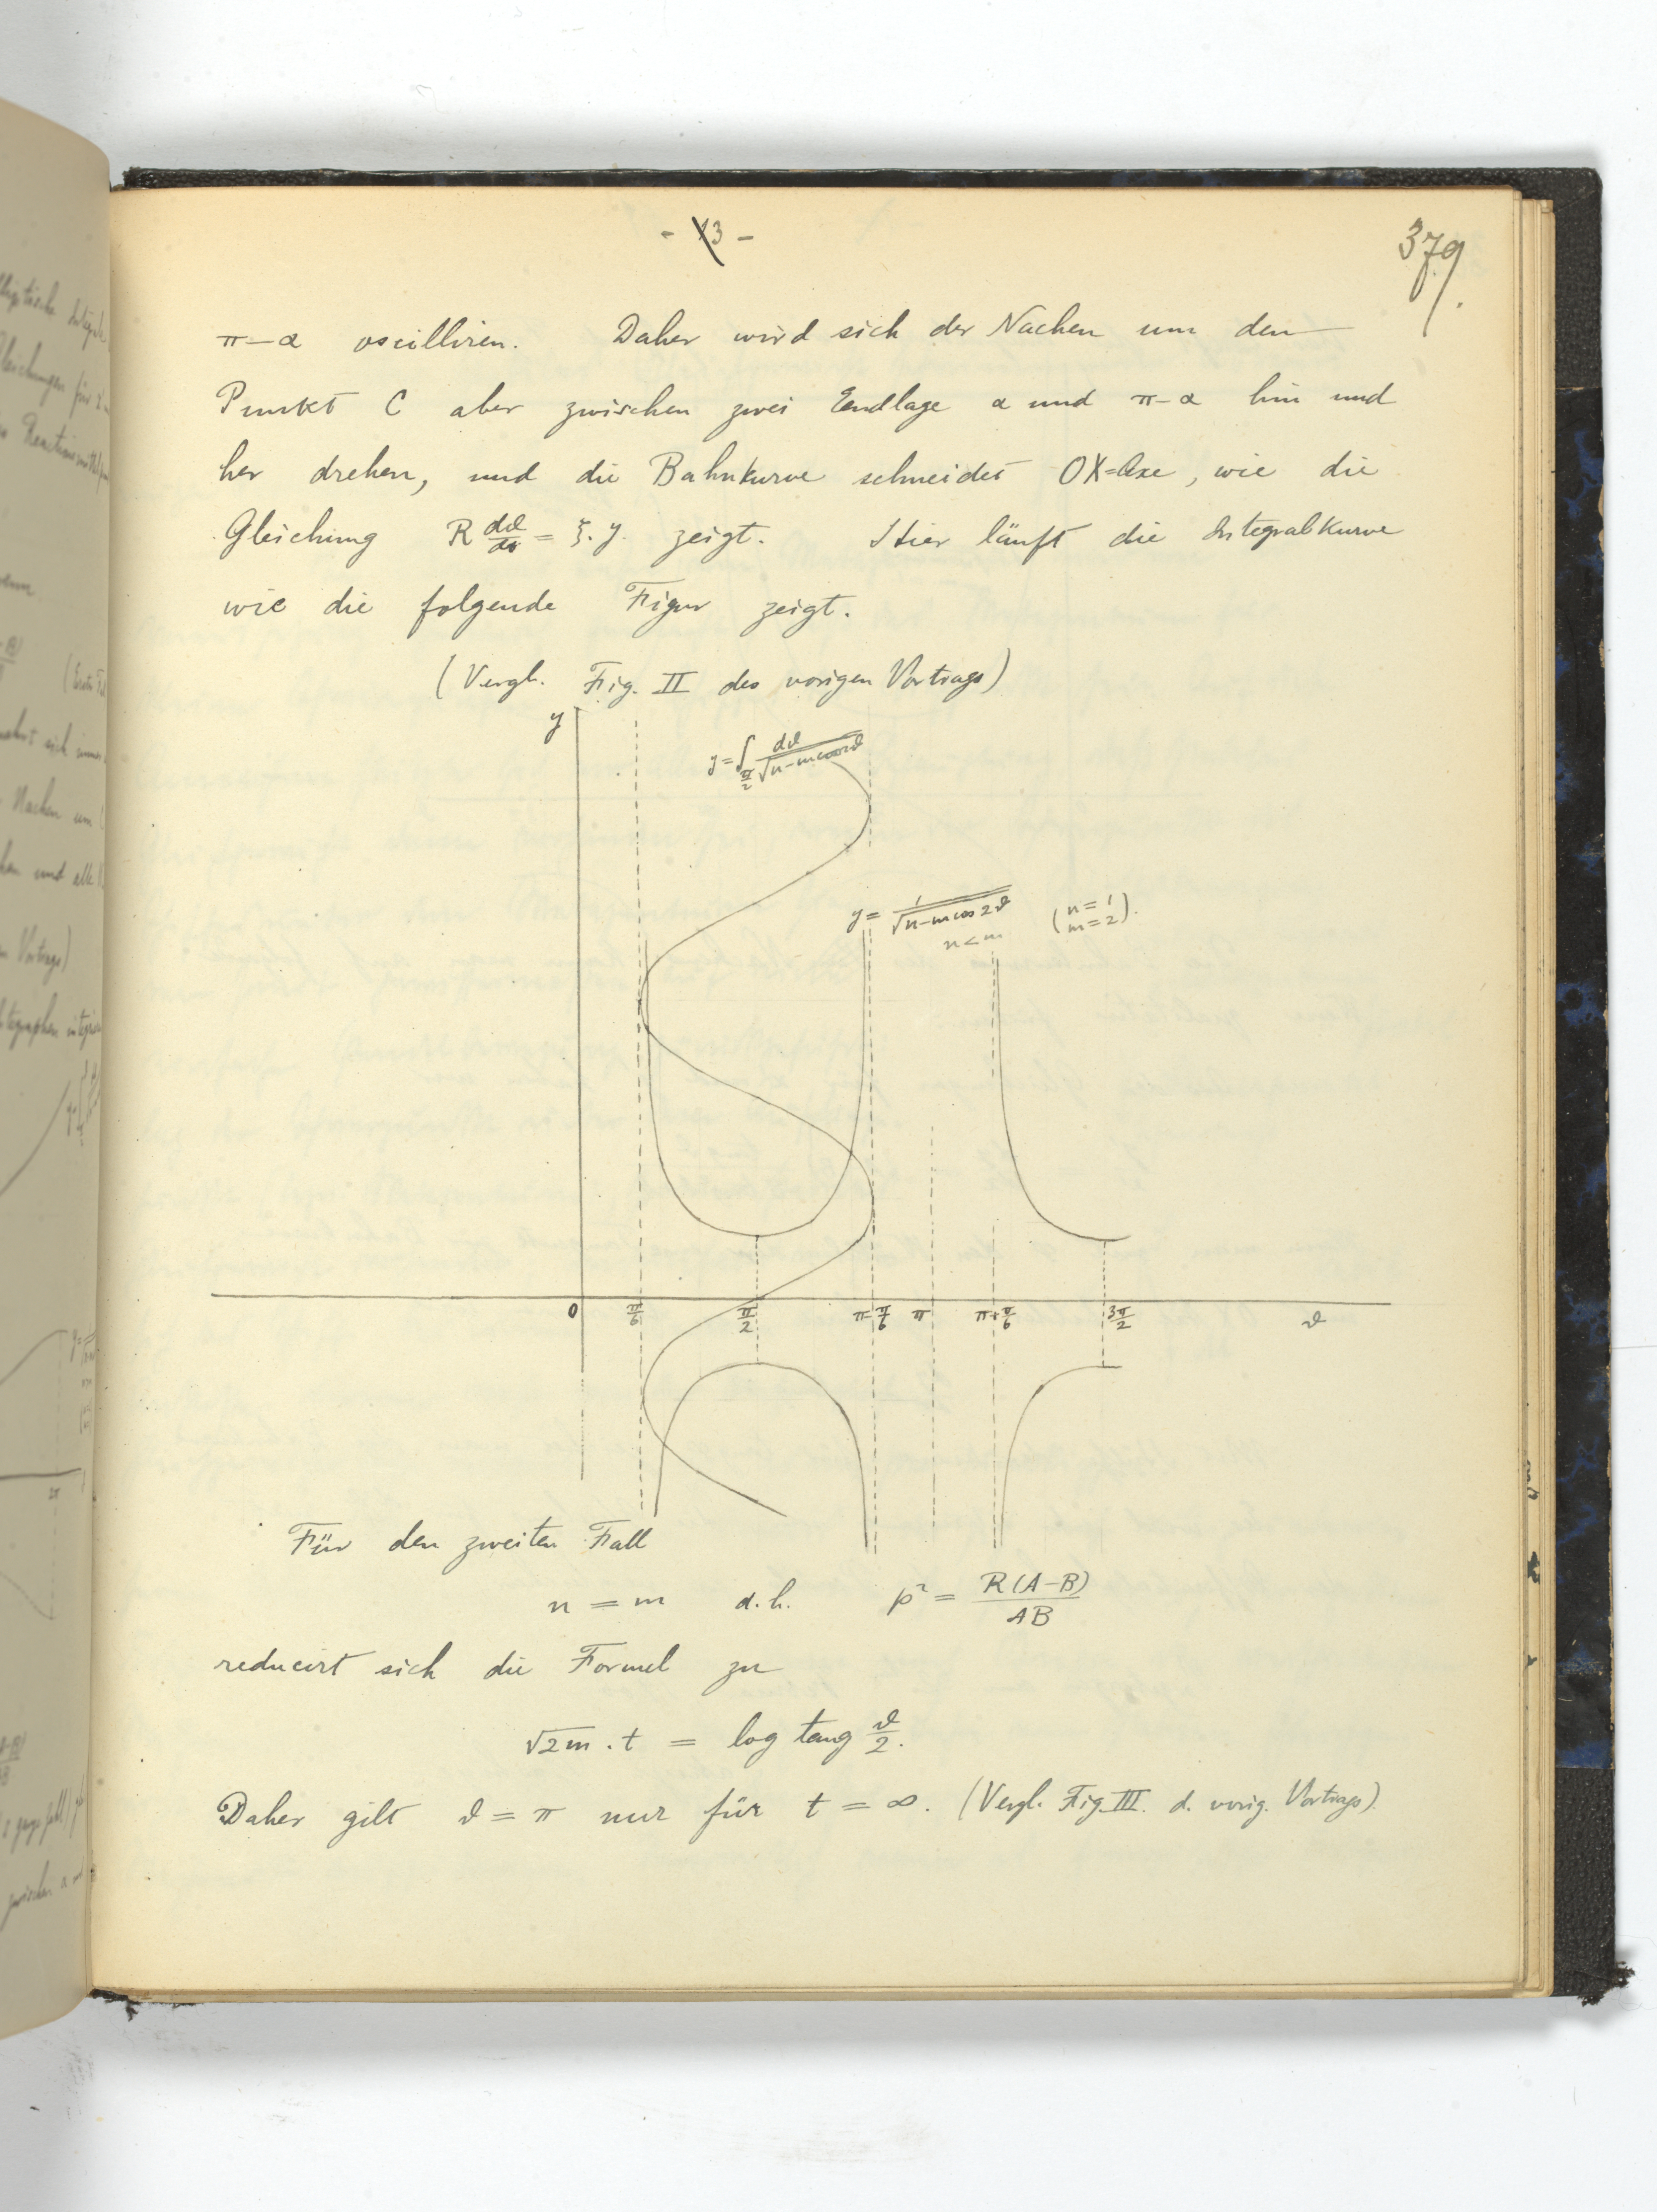 - 13 -
379.
π-α oscilliren. Daher wird sich der Nachen um den
Punkt C aber zwischen zwei Endlage α und π-α hin und
her drehen, und die Bahnkurve schneidet OX=Axe, wie die
Gleichung R dϑ/dt = ξ. y. zeigt. Hier läuft die Integralkurve
wie die folgende Figur zeigt.
(Vergl. Fig. II des vorigen Vortrags)
y
y = ∫_{π/2} dϑ/√(n-m cos 2ϑ)
y = 1/√(n-m cos 2ϑ) (n=1 m=2).
n<m
0 π/6 π/2 π-π/6 π π+π/6 3π/2 ϑ
Für den zweiten Fall
n = m d.h. p² = R(A-B)/AB
reducirt sich die Formel zu
√2m . t = log tang ϑ/2.
Daher gilt ϑ = π nur für t = ∞. (Vergl. Fig. III. d. vorig. Vortrags).